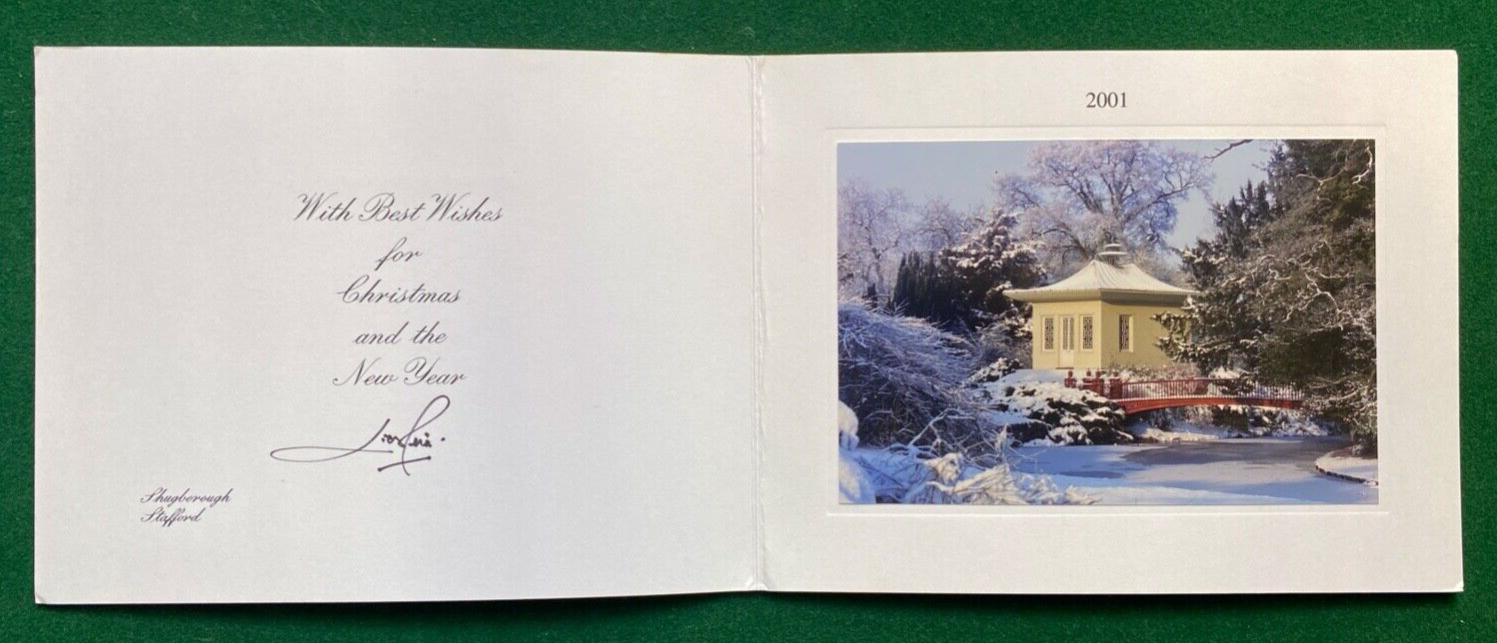 With Best Wishes
for
Christmas
and the
New Year
Shugborough
Stafford
2001